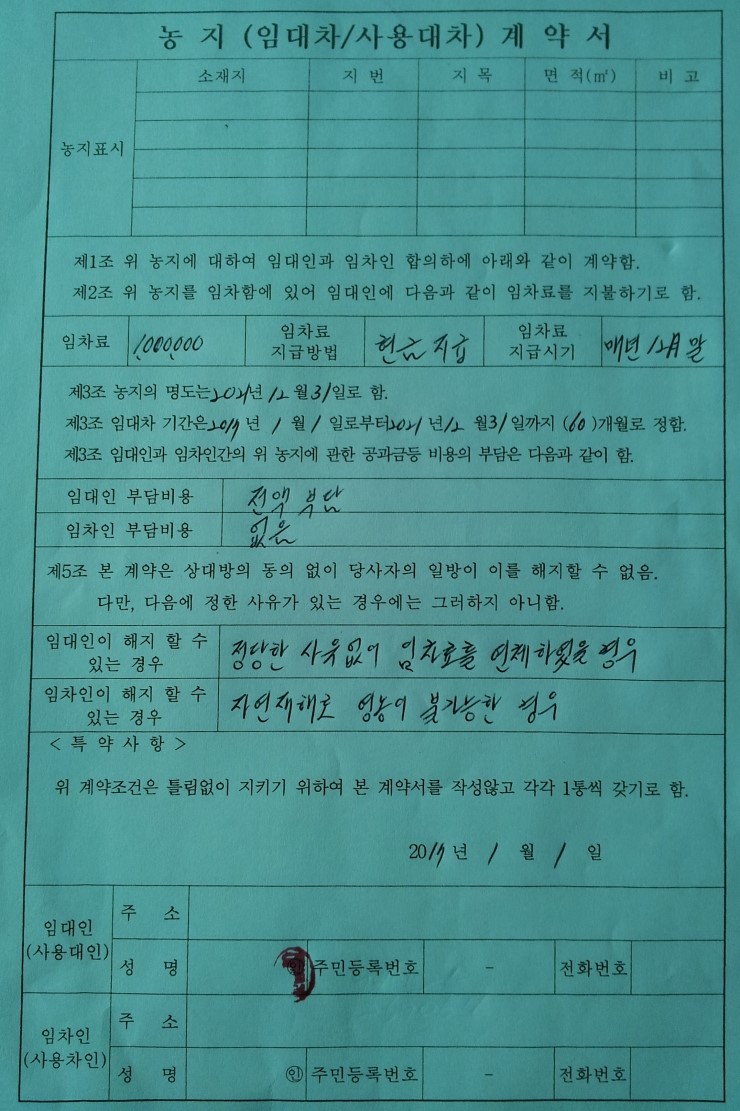 농 지 (임대차/사용대차) 계 약 서
농지표시 소재지 지 번 지 목 면 적(㎡) 비 고
제1조 위 농지에 대하여 임대인과 임차인 합의하에 아래와 같이 계약함.
제2조 위 농지를 임차함에 있어 임대인에 다음과 같이 임차료를 지불하기로 함.
임차료 1,000,000 임차료 지급방법 현금 지급 임차료 지급시기 매년 12월 말
제3조 농지의 명도는 2021년 12월 31일로 함.
제3조 임대차 기간은 2017년 1월 1일로부터 2021년 12월 31일까지 (60)개월로 정함.
제3조 임대인과 임차인간의 위 농지에 관한 공과금등 비용의 부담은 다음과 같이 함.
임대인 부담비용 전액 부담
임차인 부담비용 없음
제5조 본 계약은 상대방의 동의 없이 당사자의 일방이 이를 해지할 수 없음.
다만, 다음에 정한 사유가 있는 경우에는 그러하지 아니함.
임대인이 해지 할 수 있는 경우 정당한 사유없이 임차료를 연체하였을 경우
임차인이 해지 할 수 있는 경우 자연재해로 영농이 불가능한 경우
< 특 약 사 항 >
위 계약조건은 틀림없이 지키기 위하여 본 계약서를 작성않고 각각 1통씩 갖기로 함.
2017년 1 월 1 일
임대인 (사용대인) 주 소
성 명 ㊞ 주민등록번호 - 전화번호
임차인 (사용차인) 주 소
성 명 ㊞ 주민등록번호 - 전화번호